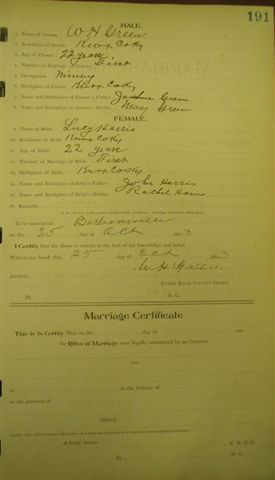 191
MALE.
1. Name of Groom W H Green
2. Residence of Groom Knox Co Ky
3. Age of Groom 22 years
4. Number of Marriage of Groom First
5. Occupation Mining
6. Birthplace of Groom Knox Co Ky
7. Name and Birthplace of Groom's Father Joshua Green
8. Name and Birthplace of Groom's Mother Mary Green
FEMALE.
9. Name of Bride Lucy Harris
10. Residence of Bride Knox Co Ky
11. Age of Bride 22 years
12. Number of Marriage of Bride First
13. Birthplace of Bride Knox Co Ky
14. Name and Birthplace of Bride's Father John Harris
15. Name and Birthplace of Bride's Mother Rachel Harris
16. Remarks
To be married at Barbourville
on the 25 day of Oct 3
I Certify that the above is correct to the best of my knowledge and belief.
Witness my hand, this 25 day of Oct 3
W H Green
Attest:
Clerk Knox County Court.
By D. C.
Marriage Certificate
This is to Certify That on the day of
the Rites of Marriage were legally solemnized by me between
and
at in the County of
in the presence of
Signed
A Copy Attest: C. K. C. C.
By D. C.